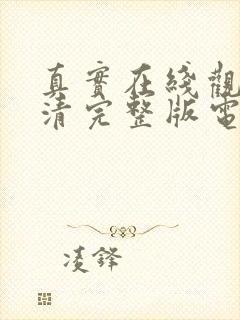 真實在綫觀
清完整版電
凌鋒